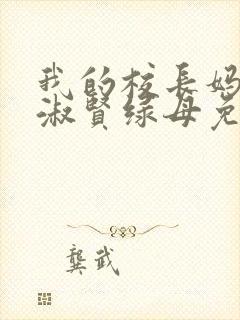 我的校长妈
淑贤绿母免
龚武